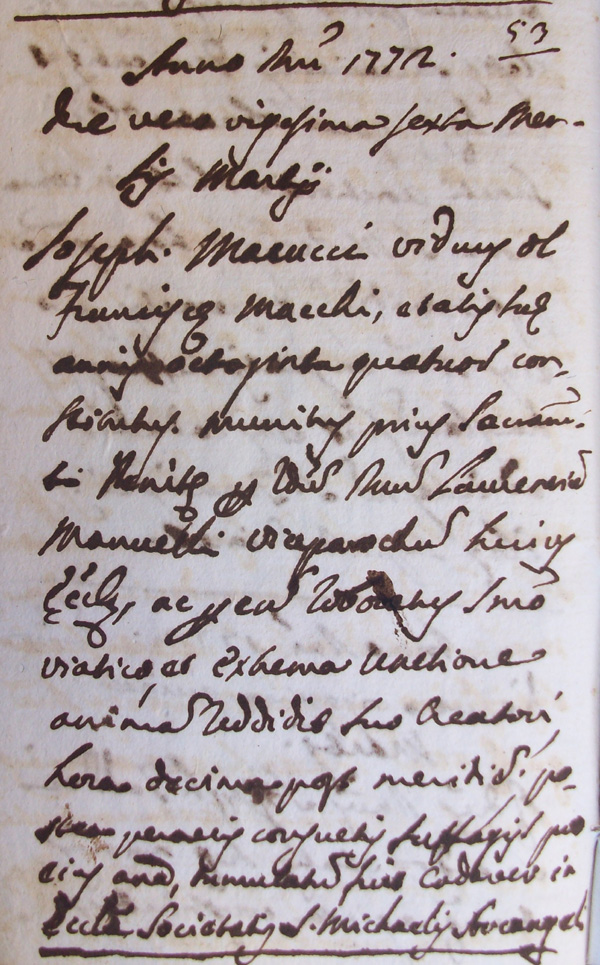 53
Anno Dnī 1772.
die vero vigesima sexta Men-
sis Martij
Joseph Macucci viduus ol
Francisce Macchi, etatis sue
annis octoginta quatuor con-
stitutus. munitus prius Sacram-
ti Penite p Rdū Dnū Laurentiū
Manuelli viceparochū huius
Ecclē, ac p eū roboratus Smō
viatico, et Extrema Unctione
animā reddidit suo Creatori
hora decima post meridiē. po-
stea peractis consuetis suffragijs pro
eius anā, tumulatū fuit Cadaver in
Eccla Societatis S. Michaelis Arcangeli